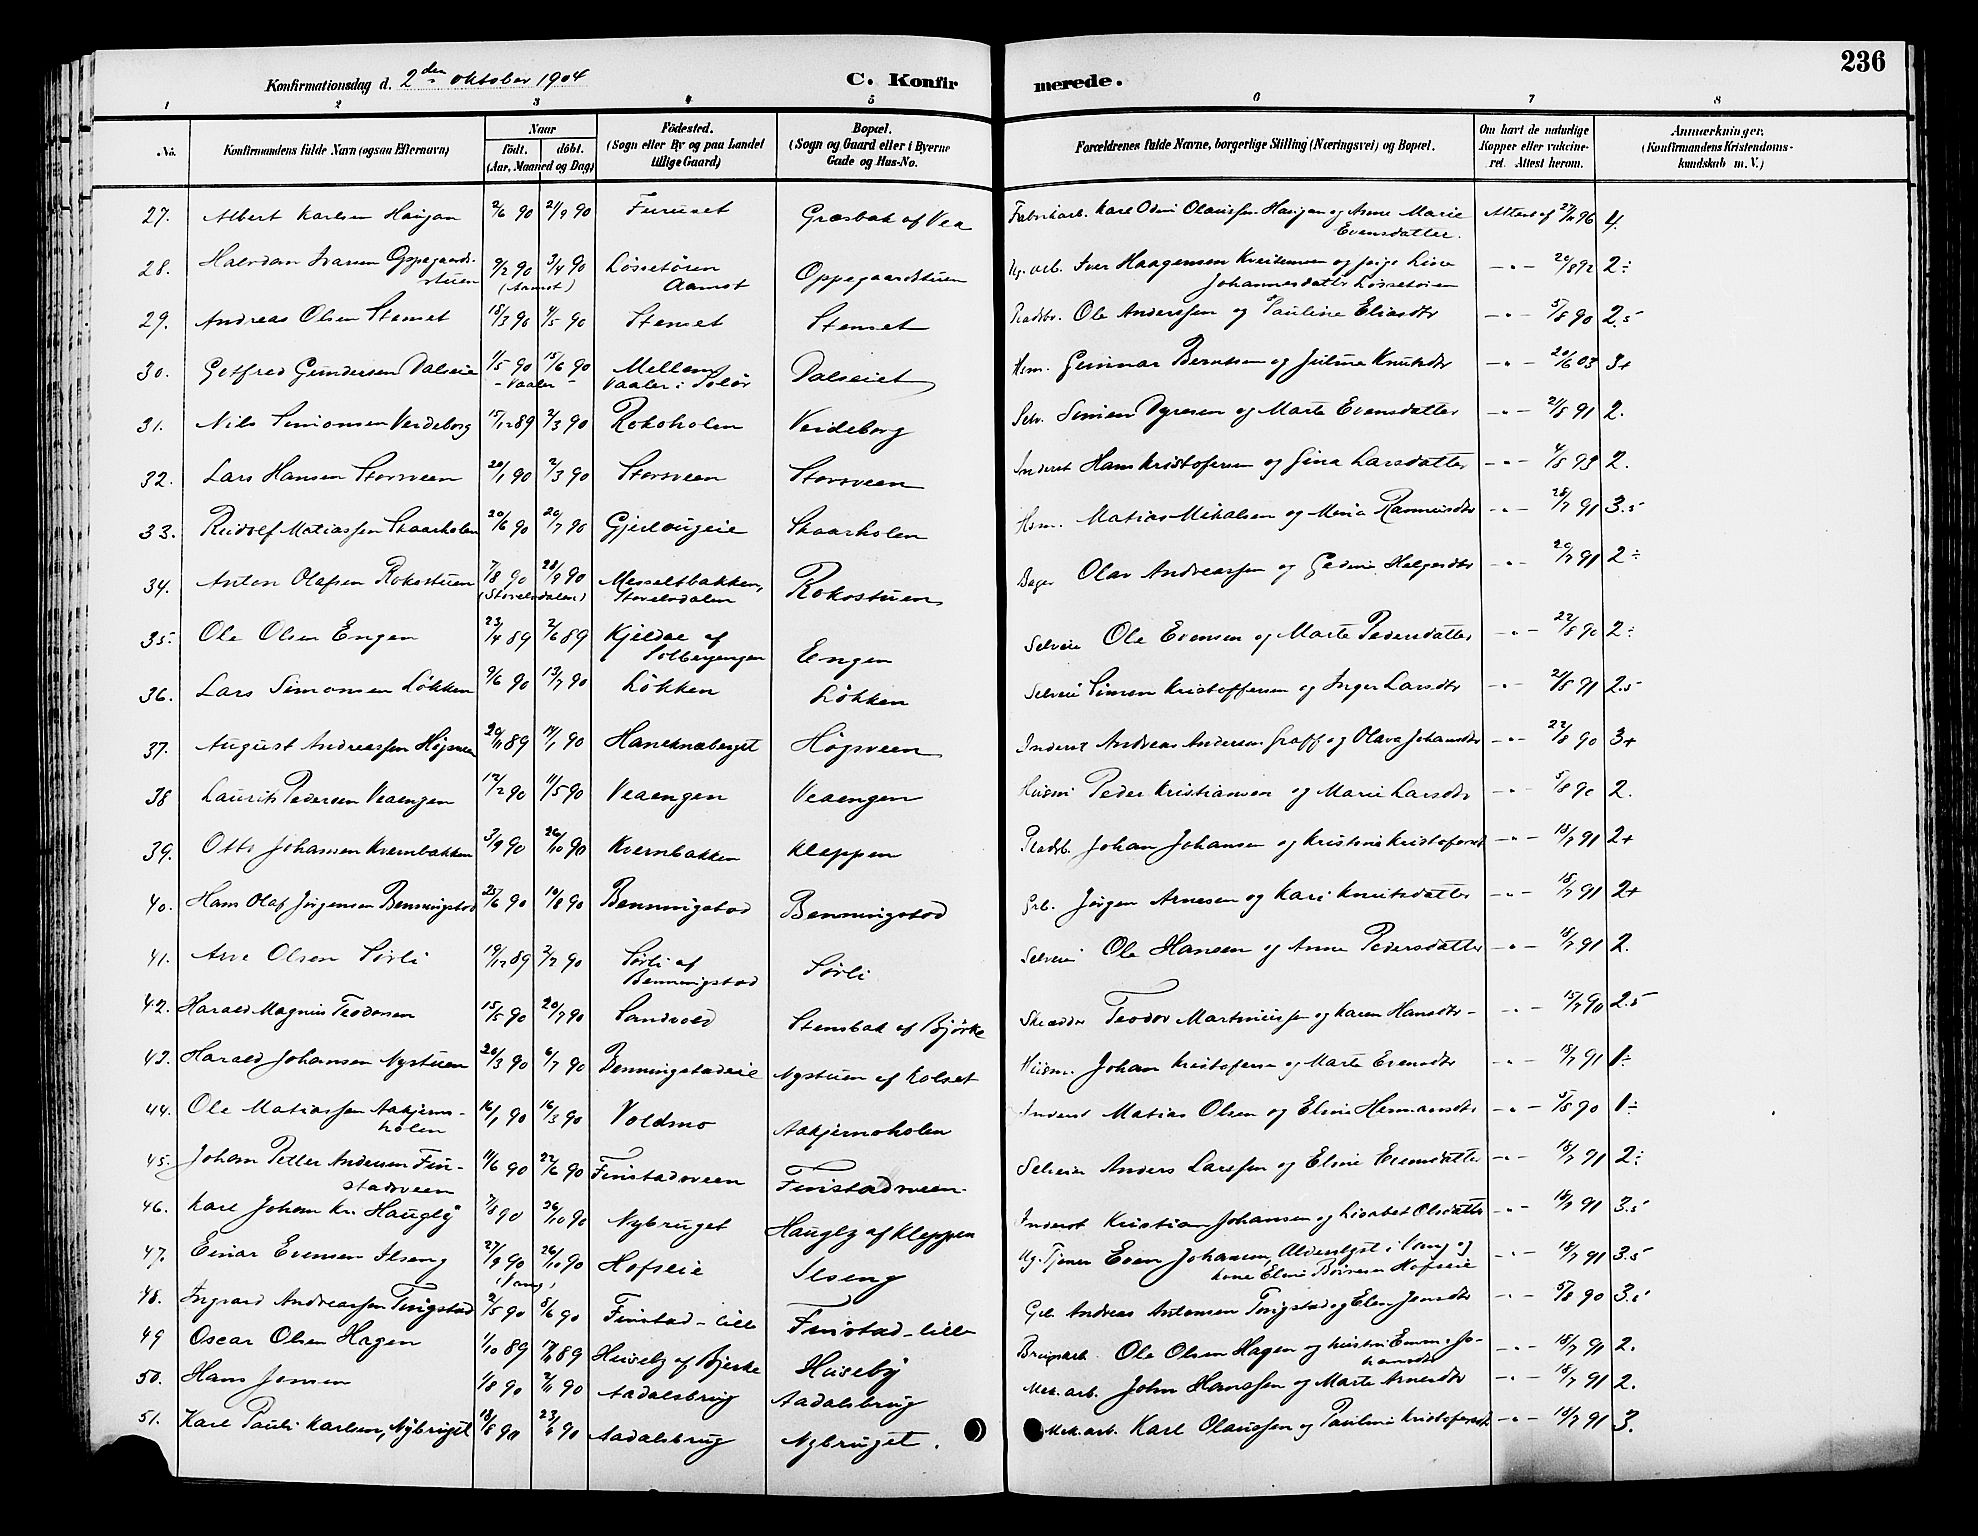 236
Konfirmationsdag d. 2den oktober 1904
C. Konfirmerede.
1 2 3 4 5 6 7 8
No.
Konfirmandens fulde Navn (ogsaa Efternavn)
Naar
födt. döbt.
(Aar, Maaned og Dag)
Födested.
(Sogn eller By og paa Landet
tillige Gaard)
Bopæl.
(Sogn og Gaard eller i Byerne
Gade og Hus-No.
Forældrenes fulde Navne, borgerlige Stilling (Næringsvei) og Bopæl.
Om havt de naturlige
Kopper eller vakcine-
ret. Attest herom.
Anmærkninger.
(Konfirmandens Kristendoms-
kundskab m. V.)
27. Albert Karlsen Haugan 2/6 90 21/9 90 Furuset Græsbak af Vea Fabrikarb. Karl Odin Olaussen Haugan og Anne Marie Attest af 27/11 96 4.
Evensdatter.
28. Halvdan Ivarsen Oppegaards- 9/2 90 3/4 90 Løssetøren Oppegaardstuen Iver Haagensen Kveitenven og pige Lina -"- 20/8 92 2÷
stuen (Aamot) Aamot Johannesdatter Løssetøien
29. Andreas Olsen Stenset 18/3 90 4/5 90 Stenset Stenset Pladsbr. Ole Anderssen og Pauline Eliasdtr -"- 5/8 90 2.5
30. Gotfred Gundersen Dalseie 1/5 90 15/6 90 Mellem Dalseiet Hsm. Gunnar Berntsen og Juline Knutsdtr -"- 20/6 03 3+
- Vaaler - Vaaler i Solør
31. Nils Simonsen Verdeborg 15/12 89 2/3 90 Rokoholen Verdeborg Selv. Simen Dyresen og Marte Evensdatter -"- 21/8 91 2.
32. Lars Hansen Storsveen 20/1 90 2/3 90 Storsveen Storsveen Inderst Hans Kristofersen og Gina Larsdatter -"- 4/8 93 2.
33. Rudolf Matiassen Skaarholen 20/6 90 20/7 90 Gjerlougeie Skaarholen Hsm. Matias Mikalsen og Mina Rasmusdtr -"- 28/7 91 3.5
34. Anton Olafsen Rokostuen 7/8 90 28/9 90 Messeltbakken, Rokostuen Bager Olav Andreassen og Gedine Helgesdtr -"- 20/7 91 2÷
(Storelvdalen) Storelvdalen
35. Ole Olsen Engen 23/4 89 2/6 89 Kjeldae af Engen Selveie Ole Evensen og Marte Pedersdatter -"- 22/8 90 2÷
Solbergengen
36. Lars Simonsen Løkken 9/6 90 13/7 90 Løkken Løkken Selveie Simen Kristoffersen og Inger Larsdtr -"- 21/8 91 2.5
37. August Andreassen Høgsveen 29/11 89 14/1 90 Haneknæberget Høgsveen Inderst Andreas Andersen Graff og Olava Johansdtr -"- 22/8 90 3+
38 Laurits Pedersen Veaengen 12/2 90 11/5 90 Veaengen Veaengen Husm Peder Kristiansen og Marie Larsdtr -"- 5/8 90 2.
39. Otto Johansen Kvernbakken 3/9 90 26/10 90 Kvernbakken Kleppen Pladsb. Johan Johansen og Kristine Kristofersd -"- 18/7 91 2+
40. Hans Olaf Jørgensen Benningstad 25/6 90 10/8 90 Benningstad Benningstad Grb. Jørgen Arnesen og Kari Knutsdatter -"- 18/7 91 2+
41. Arve Olsen Sørli 19/12 89 2/2 90 Sørli af Sørli Selveie Ole Hansen og Anne Pedersdatter -"- 18/7 91 2.
Benningstad
42. Harald Magnus Teodorsen 15/5 90 20/7 90 Sandvold Stensbak af Bjørke Skrædder Teodor Martinussen og Karen Hansdtr -"- 15/7 90 2.5
43. Harald Johansen Nystuen 20/3 90 6/7 90 Benningstadeie Nystuen af Kolset Husm. Johan Kristofersen og Marte Evensdtr -"- 18/7 91 1÷
44. Ole Matiassen Aakjerns- 16/1 90 16/3 90 Voldmo Aakjernsholen Inderst Matias Olsen og Eline Hermansdtr -"- 5/8 90 1÷
holen
45. Johan Petter Andersen Fin- 11/6 90 22/6 90 Finstadsveen Finstadsveen Selveier Anders Larssen og Eline Evensdatter -"- 18/7 91 2÷
stadsveen
46. Karl Johan Kr. Haugly 7/8 90 26/10 90 Nybruget Haugly af Kleppen Inderst Kristian Johansen og Lisabet Olsdatter -"- 18/7 91 3.5
47. Einar Evensen Ilseng 27/9 90 26/10 90 Hofseie Ilseng Ug. Tjener Even Johansen, Aldenlyst i Vang og -"- 18/7 91 3.5
(Vang) kone Eline Hofseie
48. Ingvard Andreassen Tingstad 2/5 90 8/6 90 Finstad-lille Finstad-lille Grb Andreas Antonsen Tingstad og Elen Jensdtr -"- 5/8 90 3.5
49 Oscar Olsen Hagen 1/10 89 17/11 89 Huseby af Bjerke Huseby Brugsarb. Ole Olsen Hagen og hustru Emma Jo- -"- 18/7 91 2.
hansdtr
50. Hans Jensen 1/8 90 2/11 90 Aadalsbrug Aadalsbrug Mek. arb. John Hanssen og Marte Arnesdtr -"- 18/7 91 2.
51. Karl Pauli Karlsen, Nybruget 18/8 90 23/11 90 Aadalsbrug Nybruget. Mek. arb. Karl Olaussen og Pauline Kristofersdt -"- 18/7 91 3.